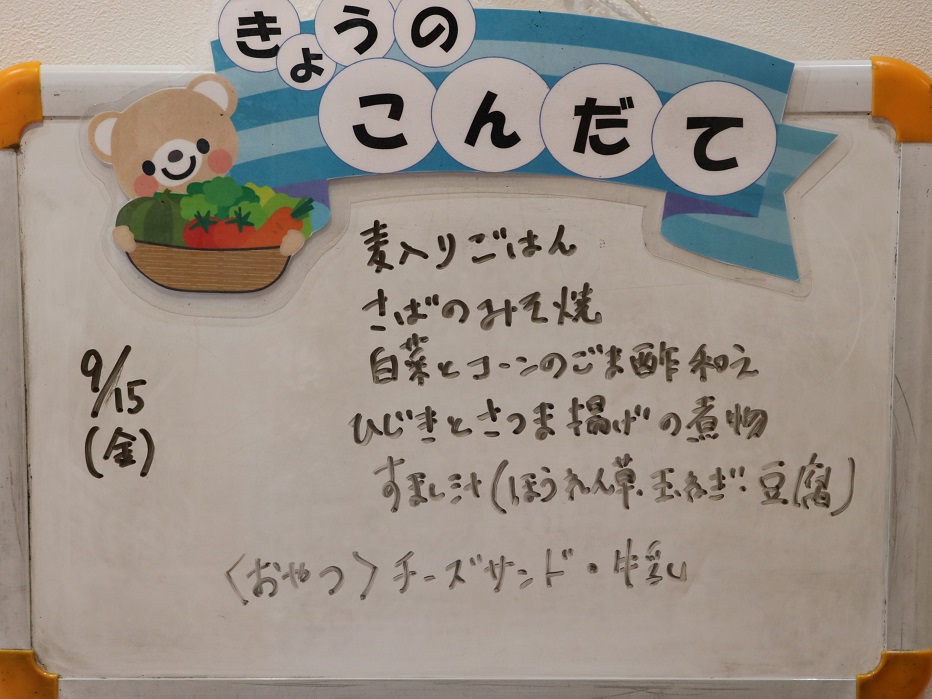 きょうの
こんだて
麦入りごはん
さばのみそ焼
白菜とコーンのごま酢和え
9/15
(金)
ひじきとさつま揚げの煮物
すまし汁(ほうれん草.玉ねぎ.豆腐)
〈おやつ〉チーズサンド・牛乳